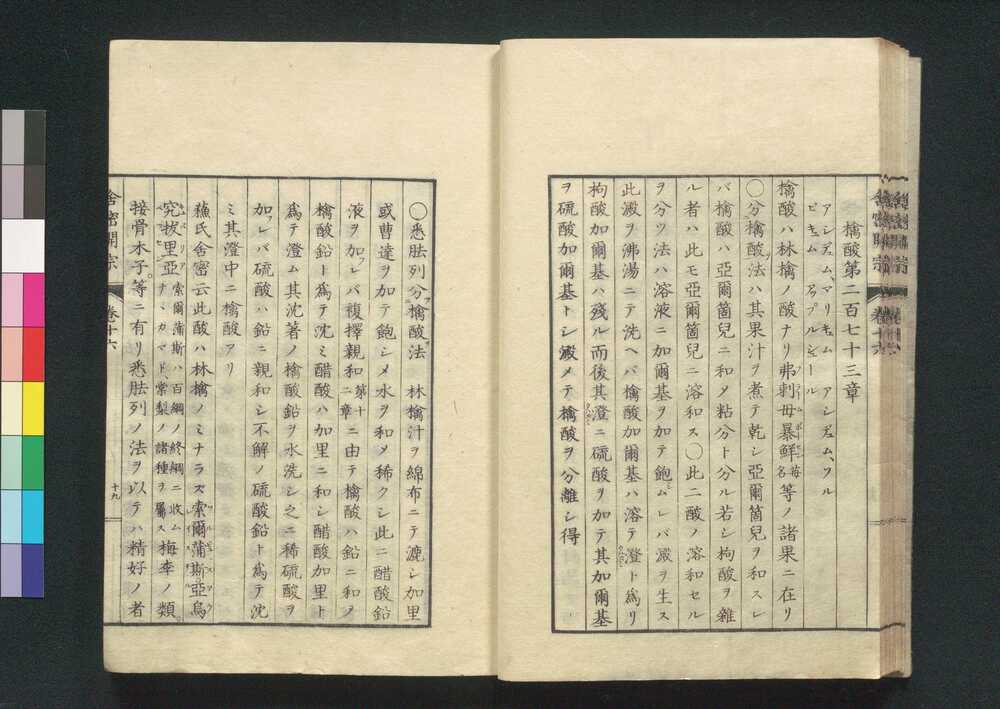 檎酸第二百七十三章
アシヂュム、マリキュム　アシヂュム、フル
ピキュム　アップルシュール
檎酸ハ林檎ノ酸ナリ弗剌毋暴鮮苺名等ノ諸果ニ在リ
○分檎酸法ハ其果汁ヲ煮テ乾シ亞爾箇兒ヲ和スレ
バ檎酸ハ亞爾箇兒ニ和メ粘分ト分ル若シ拘酸ヲ雜
ル者ハ此モ亞爾箇兒ニ溶和ス○此二酸ノ溶和セル
ヲ分ツ法ハ溶液ニ加爾基ヲ加テ飽ムレバ澱ヲ生ス
此澱ヲ沸湯ニテ洗ヘバ檎酸加爾基ハ溶テ澄ト爲リ
拘酸加爾基ハ殘ル而後其澄ニ硫酸ヲ加テ其加爾基
ヲ硫酸加爾基トシ澱メテ檎酸ヲ分離シ得
○悉㳒列分檎酸法　林檎汁ヲ綿布ニテ漉シ加里
或曹達ヲ加テ飽シメ水ヲ和メ稀クシ此ニ醋酸鉛
液ヲ加レバ複擇親和第十二章ニ由テ檎酸ハ鉛ニ和ノ
檎酸鉛ト爲テ沈ミ醋酸ハ加里ニ和シ醋酸加里ト
爲テ澄ム其沈著ノ檎酸鉛ヲ水洗シ之ニ稀硫酸ヲ
加レバ硫酸ハ鉛ニ親和シ不解ノ硫酸鉛ト爲テ沈
ミ其澄中ニ檎酸アリ
蘓氏舍密云此酸ハ林檎ノミナラズ索爾蒲斯亞烏
究抜里亞索爾蒲斯ハ百綱ノ終綱ニ收ムナヽカマド棠梨ノ諸種ヲ屬ス梅李ノ類
接骨木子等ニ有リ悉㳒列ノ法ヲ以テハ精好ノ者
舍密開宗
卷十六
十九